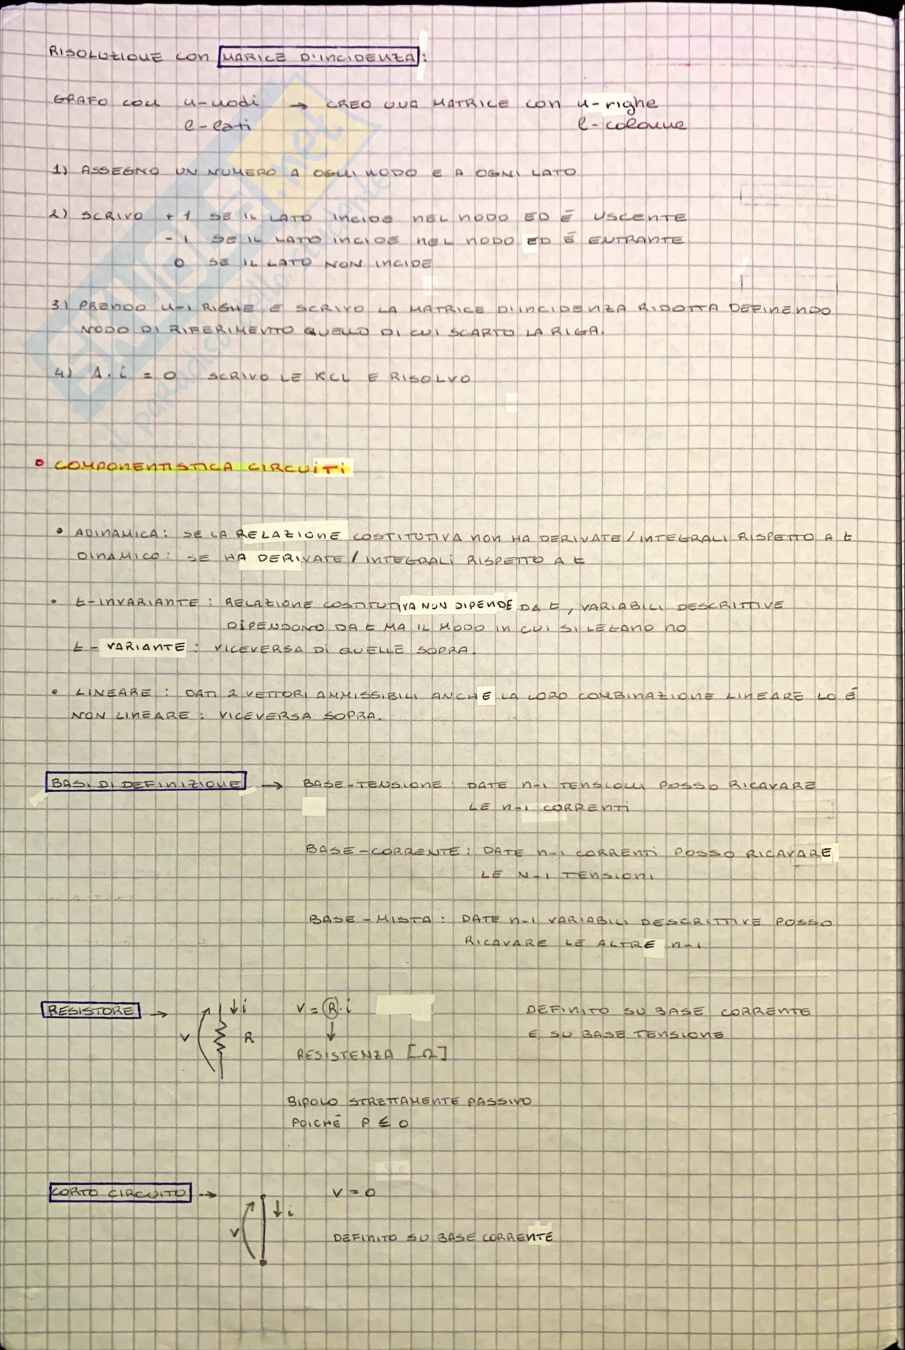 RISOLUZIONE CON MARICE D'INCIDENZA:
GRAFO CON n-nodi → CREO UNA MATRICE CON n-righe
l-lati l-colonne
1) ASSEGNO UN NUMERO A OGNI NODO E A OGNI LATO
2) SCRIVO +1 SE IL LATO INCIDE NEL NODO ED È USCENTE
-1 SE IL LATO INCIDE NEL NODO ED È ENTRANTE
0 SE IL LATO NON INCIDE
3) PRENDO n-1 RIGHE E SCRIVO LA MATRICE D'INCIDENZA RIDOTTA DEFINENDO
NODO DI RIFERIMENTO QUELLO DI CUI SCARTO LA RIGA.
4) A·i = 0 SCRIVO LE KCL E RISOLVO
• COMPONENTISTICA CIRCUITI
• ADINAMICA: SE LA RELAZIONE COSTITUTIVA NON HA DERIVATE/INTEGRALI RISPETTO A t
DINAMICO: SE HA DERIVATE/INTEGRALI RISPETTO A t
• t-INVARIANTE: RELAZIONE COSTITUTIVA NON DIPENDE DA t, VARIABILI DESCRITTIVE
DIPENDONO DA t MA IL MODO IN CUI SI LEGANO NO
t-VARIANTE: VICEVERSA DI QUELLE SOPRA.
• LINEARE: DATI 2 VETTORI AMMISSIBILI ANCHE LA LORO COMBINAZIONE LINEARE LO È
NON LINEARE: VICEVERSA SOPRA.
BASI DI DEFINIZIONE → BASE-TENSIONE: DATE n-1 TENSIONI POSSO RICAVARE
LE n-1 CORRENTI
BASE-CORRENTE: DATE n-1 CORRENTI POSSO RICAVARE
LE N-1 TENSIONI
BASE-MISTA: DATE n-1 VARIABILI DESCRITTIVE POSSO
RICAVARE LE ALTRE n-1
RESISTORE → V R ↓i V = R·i DEFINITO SU BASE CORRENTE
E SU BASE TENSIONE
RESISTENZA [Ω]
BIPOLO STRETTAMENTE PASSIVO
POICHÈ P ≤ 0
CORTO CIRCUITO → V ↓i V=0
DEFINITO SU BASE CORRENTE